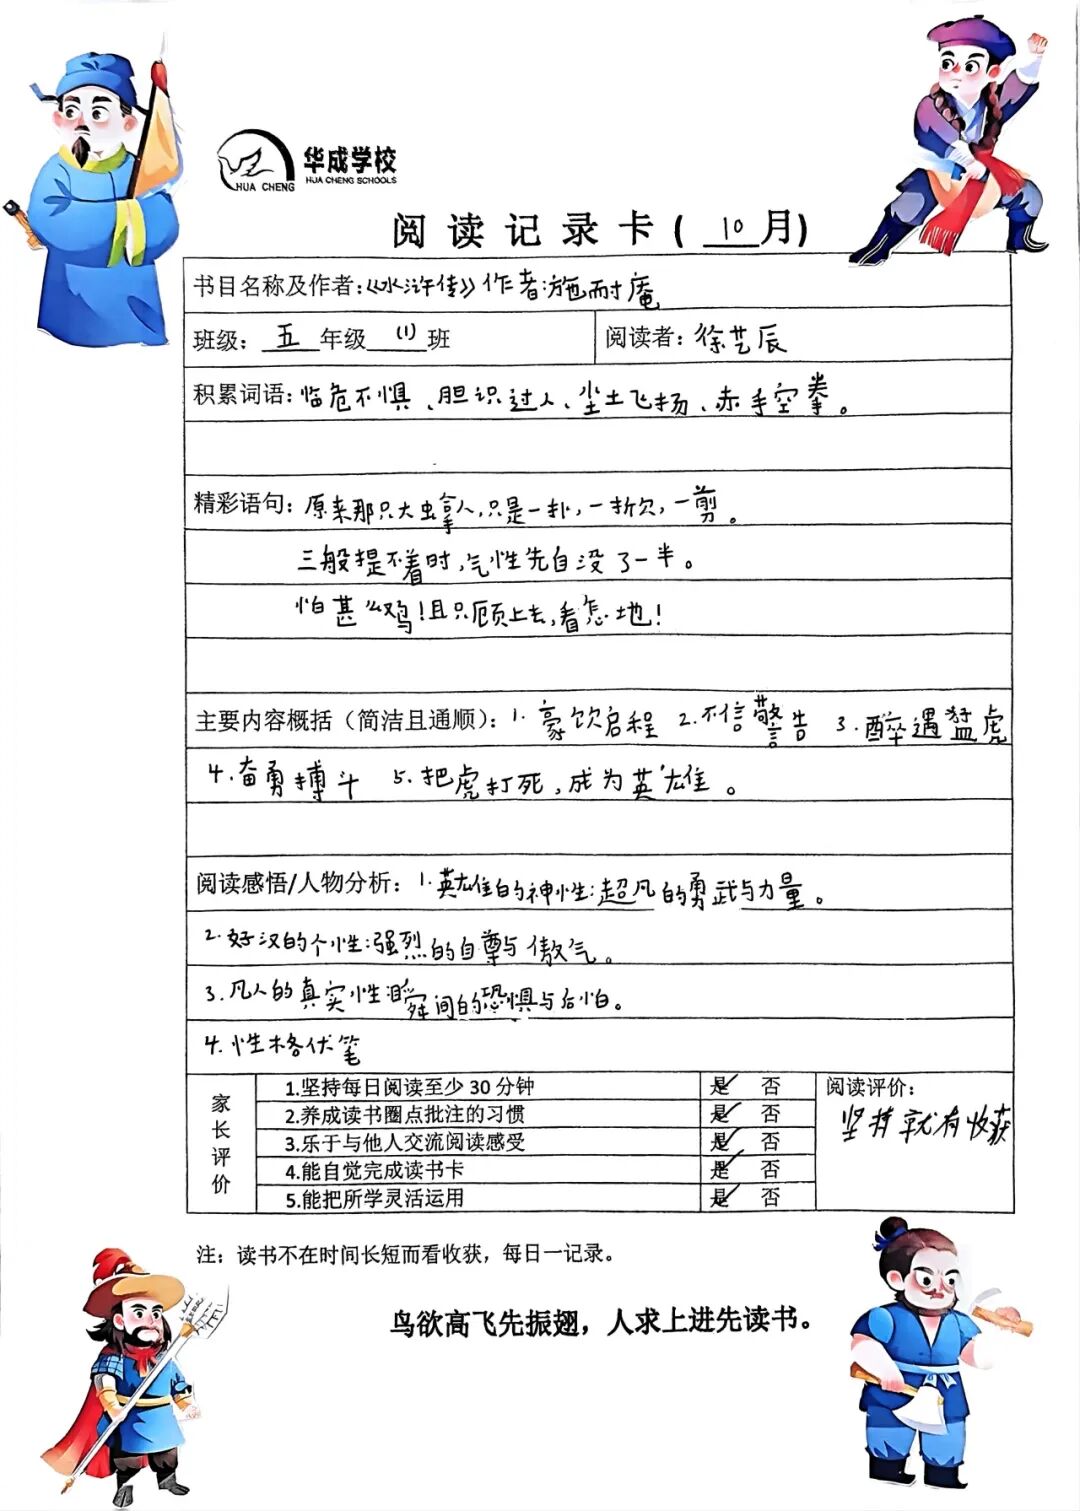 华成学校
HUA CHENG
HUA CHENG SCHOOLS
阅读记录卡(10月)
书目名称及作者:《水浒传》作者:施耐庵
班级:五年级(1)班 阅读者:徐艺辰
积累词语:临危不惧、胆识过人、尘土飞扬、赤手空拳。
精彩语句:原来那只大虫拿人,只是一扑,一掀,一剪。
三般提不着时,气性先自没了一半。
怕甚么鸟!且只顾上去,看怎地!
主要内容概括(简洁且通顺):1.豪饮启程 2.不信警告 3.醉遇猛虎
4.奋勇搏斗 5.把虎打死,成为英雄。
阅读感悟/人物分析:1.英雄的神性:超凡的勇武与力量。
2.好汉的个性:强烈的自尊与傲气。
3.凡人的真实性:瞬间的恐惧与后怕。
4.性格伏笔
家长评价
1.坚持每日阅读至少30分钟 是✓ 否
2.养成读书圈点批注的习惯 是✓ 否
3.乐于与他人交流阅读感受 是✓ 否
4.能自觉完成读书卡 是✓ 否
5.能把所学灵活运用 是✓ 否
阅读评价:
坚持就有收获
注:读书不在时间长短而看收获,每日一记录。
鸟欲高飞先振翅,人求上进先读书。